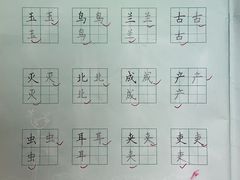 玉 玉 鸟 鸟 兰 兰 古 古
玉 鸟 兰 古
灭 灭 北 北 成 成 产 产
灭 北 成 产
虫 虫 耳 耳 夹 夹 吏 吏
虫 耳 夹 吏